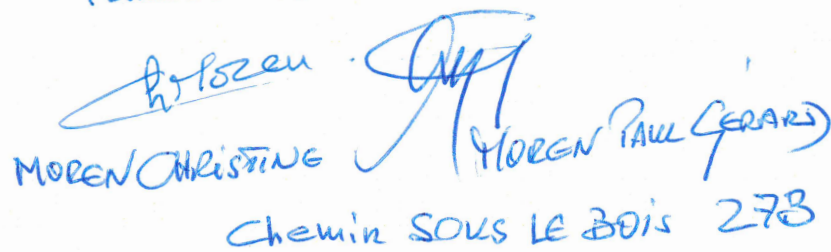 ChMoren
MOREN CHRISTINE MOREN PAUL GÉRARD
Chemin SOUS LE BOIS 27B